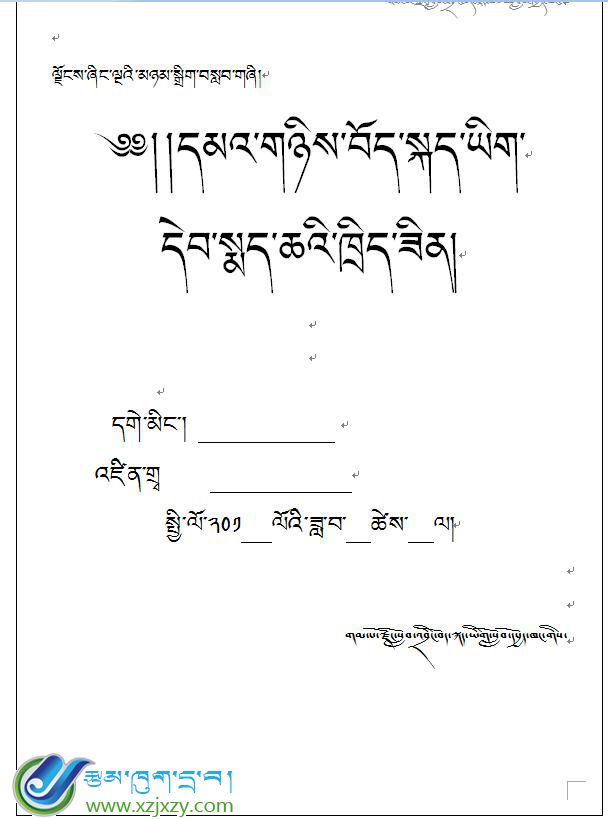 ལྗོངས་ཞིང་ལྔའི་མཉམ་སྒྲིག་བསླབ་གཞི།
༄༅། །དམའ་གཉིས་བོད་སྐད་ཡིག་
དེབ་སྨད་ཆའི་ཁྲིད་ཟིན།
དགེ་མིང་།
འཛིན་གྲྭ
སྤྱི་ལོ་༢༠༡__ལོའི་ཟླ་བ་__ཚེས་__ལ།
ཆུམ་ཁུག་དྲ་བ།
www.xzjxzy.com